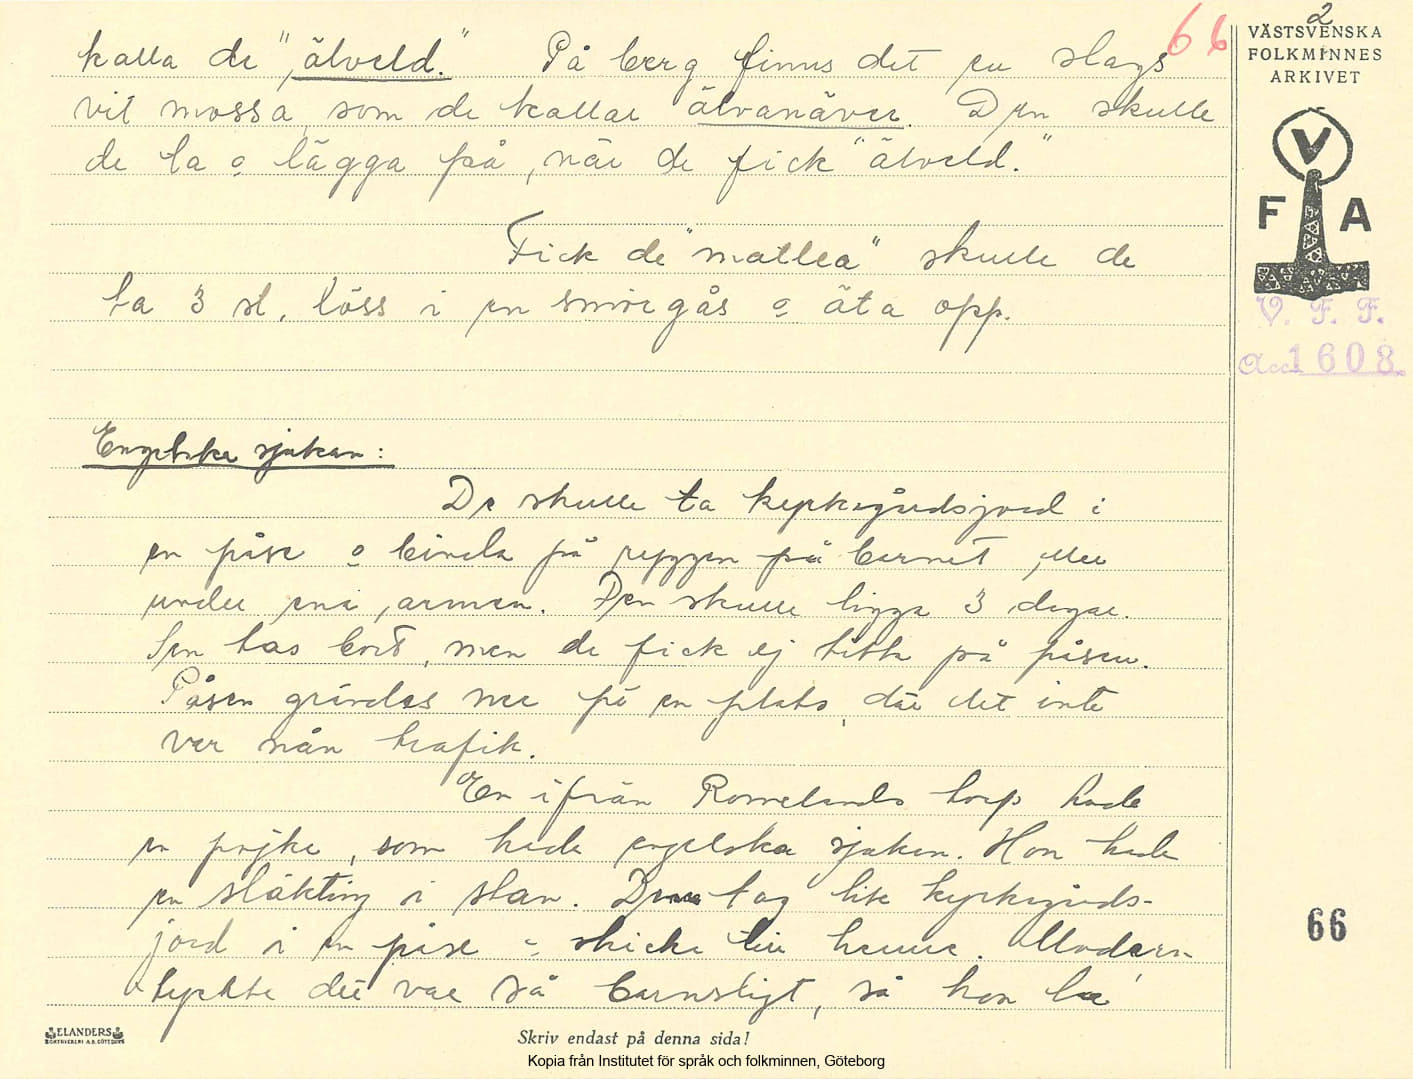 66
2
VÄSTSVENSKA
FOLKMINNES
ARKIVET
V
F A
V. F. F.
Acc. 1608.
kalla de "älveld." På berg finns det en slags
vit mossa, som de kallar älvanäver. Den skulle
de ta o lägga på, när de fick "älveld."
Fick de "mallea" skulle de
ta 3 st. löss i en smörgås o äta opp.
Engelska sjukan:
De skulle ta kyrkogårdsjord i
en påse o binda på ryggen på barnet, eller
under ena armen. Den skulle ligga 3 dagar.
Sen tas bort, men de fick ej titta på påsen.
Påsen grävdes ner på en plats, där det inte
var nån trafik.
En ifrån Romelanda torp hade
en pojke, som hade engelska sjukan. Hon hade
en släkting i stan. Denna tog lite kyrkogårds-
jord i en påse o skicka till henne. Modern
tyckte det var så barnsligt, så hon la
66
ELANDERS
BOKTRYCKERI A.B. GÖTEBORG
Skriv endast på denna sida!
Kopia från Institutet för språk och folkminnen, Göteborg